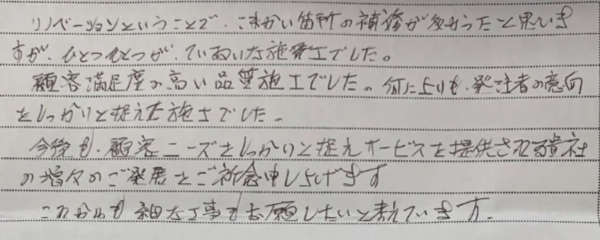 リノベーションということで、こまかい箇所の補修が多かったと思いま
すが、ひとつひとつが、ていねいな施工でした。
顧客満足度の高い品質施工でした。何よりも、発注者の意向
をしっかりと捉えた施工でした。
今後も、顧客ニーズをしっかりと捉えサービスを提供される貴社
の増々のご発展をご祈念申し上げます
これからも 細な工事をお願したいと考えています。